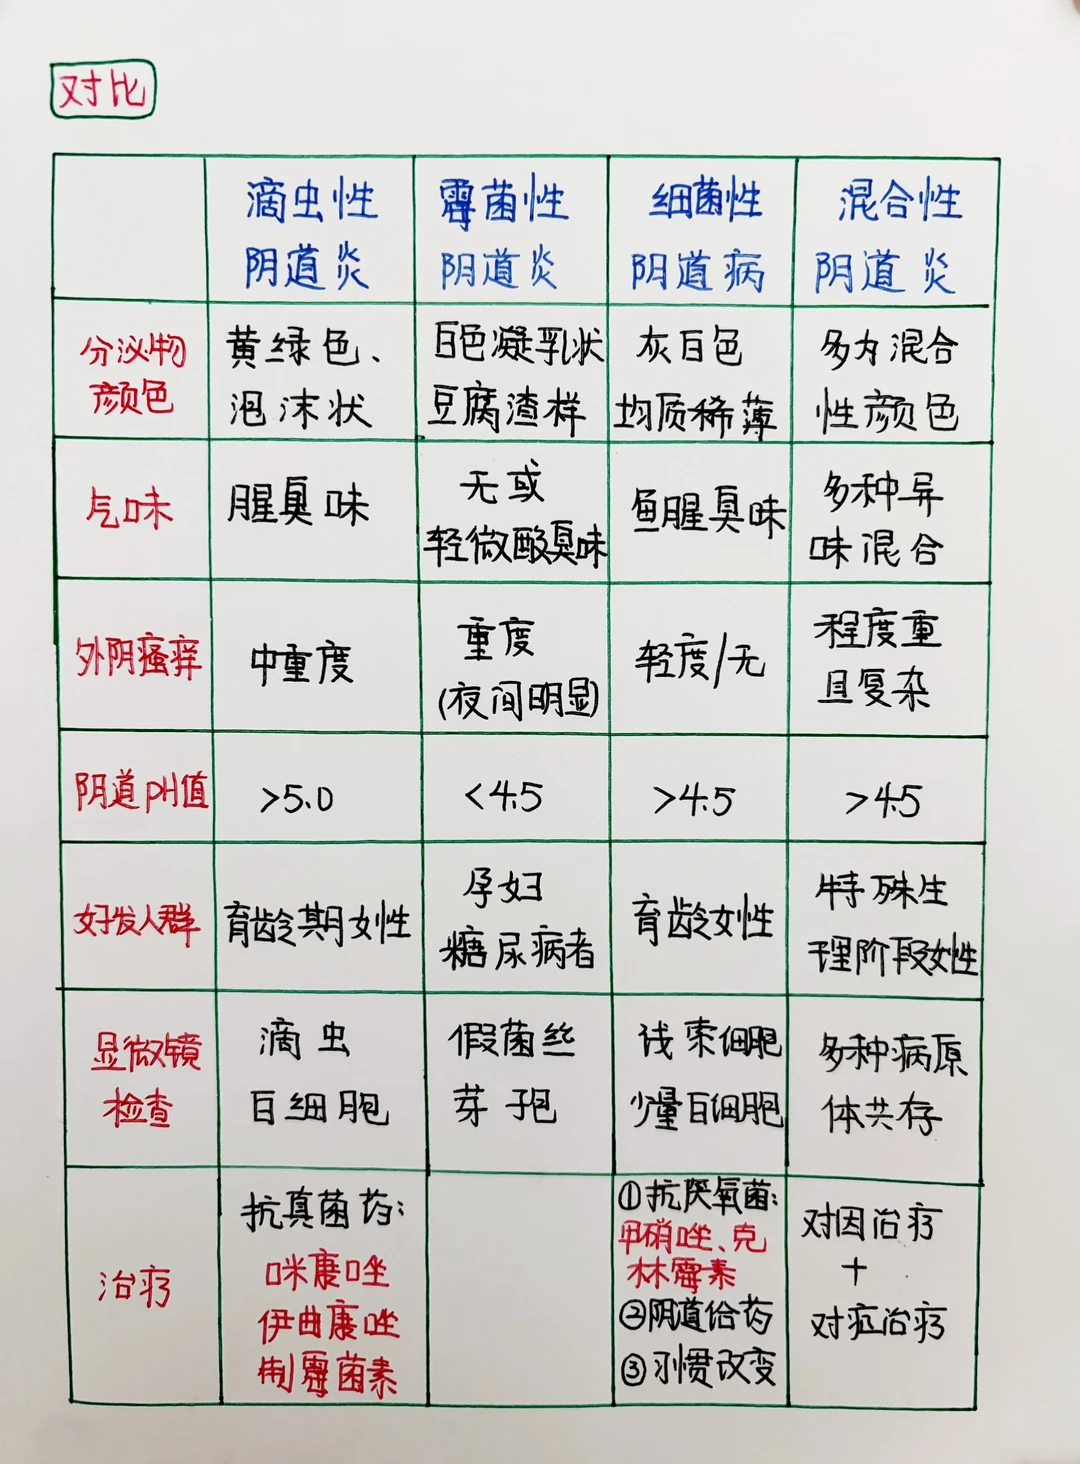 对比
滴虫性
阴道炎
霉菌性
阴道炎
细菌性
阴道病
混合性
阴道炎
分泌物
颜色
黄绿色、
泡沫状
白色凝乳状
豆腐渣样
灰白色
均质稀薄
多为混合
性颜色
气味
腥臭味
无或
轻微酸臭味
鱼腥臭味
多种异
味混合
外阴瘙痒
中重度
重度
(夜间明显)
轻度/无
程度重
且复杂
阴道pH值
>5.0
<4.5
>4.5
>4.5
好发人群
育龄期女性
孕妇
糖尿病者
育龄女性
特殊生
理阶段女性
显微镜
检查
滴虫
白细胞
假菌丝
芽孢
线索细胞
少量白细胞
多种病原
体共存
治疗
抗真菌药:
咪康唑
伊曲康唑
制霉菌素
①抗厌氧菌:
甲硝唑、克
林霉素
②阴道给药
③习惯改变
对因治疗
+
对症治疗